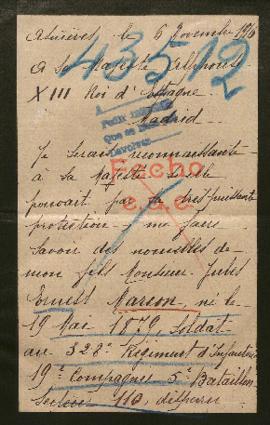 Asnières, le 6 Novembre 1916
43512
A Sa Majesté Alphonse
XIII Roi d'Espagne
Madrid
Je serai reconnaissante
Fecho
à Sa Majesté si elle
pouvait par sa très puissante
protection me faire
savoir des nouvelles de
mon fils Monsieur Jules
Ernest Narcon, né le
19 Mai 1879, Soldat
au 328e Régiment d'Infanterie
19e Compagnie 5e Bataillon
Secteur 110, disparu